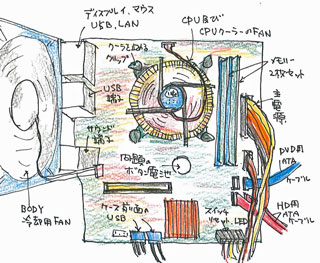 ディスプレイ、マウス
USB、LAN
CPU及び
CPUクーラーのFAN
クーラーとめる
クリップ
メモリー
2枚セット
主電源
USB
端子
サウンド
端子
問題の
ボタン電池
DVD用
ATA
ケーブル
BODY
冷却用FAN
ケース前面の
USB
スイッチ
リセット、LED
HD用
ATA
ケーブル